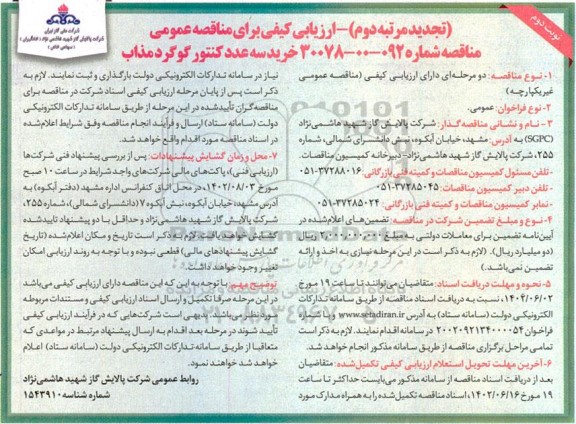 نوبت دوم
شرکت ملی گاز ایران
شرکت پالایش گاز شهید هاشمی نژاد (خانگیران)
(سهامی خاص)
(تجدید مرتبه دوم) - ارزیابی کیفی برای مناقصه عمومی
مناقصه شماره ۰۹۲-۰۰-۳۰۰۷۸ خرید سه عدد کنتور گوگرد مذاب
۱- نوع مناقصه: دو مرحله‌ای دارای ارزیابی کیفی (مناقصه عمومی
غیریکپارچه)
۲- نوع فراخوان: عمومی.
۳- نام و نشانی مناقصه گذار: شرکت پالایش گاز شهید هاشمی‌نژاد
(SGPC) به آدرس: مشهد، خیابان آبکوه، نبش دانشسرای شمالی، شماره
۲۵۵، شرکت پالایش گاز شهید هاشمی‌نژاد-دبیرخانه کمیسیون مناقصات.
-تلفن مسئول کمیسیون مناقصات و کمیته فنی بازرگانی: ۳۷۲۸۸۰۱۶-۰۵۱
-تلفن دبیر کمیسیون مناقصات: ۳۷۲۸۵۰۴۵-۰۵۱
-نمابر کمیسیون مناقصات و کمیته فنی بازرگانی: ۳۷۲۸۵۰۲۴-۰۵۱
۴- نوع و مبلغ تضمین شرکت در مناقصه: تضمین‌های اعلام‌شده در
آیین‌نامه تضمین برای معاملات دولتی به مبلغ ریال
(دو میلیارد ریال). (لازم به ذکر است در این مرحله نیازی به اخذ و ارائه
تضمین نمی‌باشد.)
۵- نحوه و مهلت دریافت اسناد: متقاضیان می‌توانند تا ساعت ۱۹ مورخ
۱۴۰۲/۰۶/۰۲، نسبت به دریافت اسناد مناقصه از طریق سامانه تدارکات
الکترونیکی دولت (سامانه ستاد) به آدرس www.setadiran.ir و شماره
فراخوان ۲۰۰۲۰۹۲۱۳۴۰۰۰۰۵۴ در سامانه اقدام نمایند. لازم به ذکر است
تمامی مراحل برگزاری مناقصه از طریق سامانه مذکور انجام خواهد شد.
۶- آخرین مهلت تحویل استعلام ارزیابی کیفی تکمیل شده: متقاضیان
بعد از دریافت اسناد مناقصه از سامانه مذکور می‌بایست حداکثر تا ساعت
۱۹ مورخ ۱۴۰۲/۰۶/۱۶، اسناد مناقصه تکمیل شده را به همراه مدارک مورد
نیاز در سامانه تدارکات الکترونیکی دولت بارگذاری و ثبت نمایند. لازم به
ذکر است پس از پایان مرحله ارزیابی کیفی اسناد شرکت در مناقصه برای
مناقصه‌گران تأییدشده در این مرحله از طریق سامانه تدارکات الکترونیکی
دولت (سامانه ستاد) ارسال و فرآیند انجام مناقصه وفق شرایط اعلام‌شده
در اسناد مناقصه مورد اقدام واقع خواهد شد.
۷- محل و زمان گشایش پیشنهادات: پس از بررسی پیشنهاد فنی شرکت‌ها
(ارزیابی فنی)، پاکت‌های مالی شرکت‌های واجد شرایط در ساعت ۱۰ صبح
مورخ ۱۴۰۲/۰۸/۰۳، در محل اتاق کنفرانس اداره مشهد (دفتر آبکوه) به
آدرس مشهد، خیابان آبکوه، نبش آبکوه ۷ (دانشسرای شمالی)، شماره ۲۵۵،
شرکت پالایش گاز شهید هاشمی نژاد و حداقل با دو پیشنهاد تاییدشده
گشایش خواهد یافت. لازم به ذکر است تاریخ و مکان اعلام شده (تاریخ
گشایش پیشنهادهای مالی) قطعی نبوده و با توجه به روند ارزیابی امکان
تغییر وجود خواهد داشت.
توضیح مهم: با توجه به این که این مناقصه دارای ارزیابی کیفی می‌باشد
در این مرحله صرفا تکمیل و ارسال اسناد ارزیابی کیفی و مستندات مربوطه
مورد نظر می‌باشد. بدیهی است شرکت‌هایی که در فرآیند ارزیابی کیفی
تأیید شوند در مرحله بعد اقدام به ارسال پیشنهاد مرتبط در مواعدی که
متعاقبا از طریق سامانه تدارکات الکترونیکی دولت (سامانه ستاد) اعلام
خواهد شد خواهند نمود.
روابط عمومی شرکت پالایش گاز شهید هاشمی‌نژاد
شماره شناسه ۱۵۴۳۹۱۰